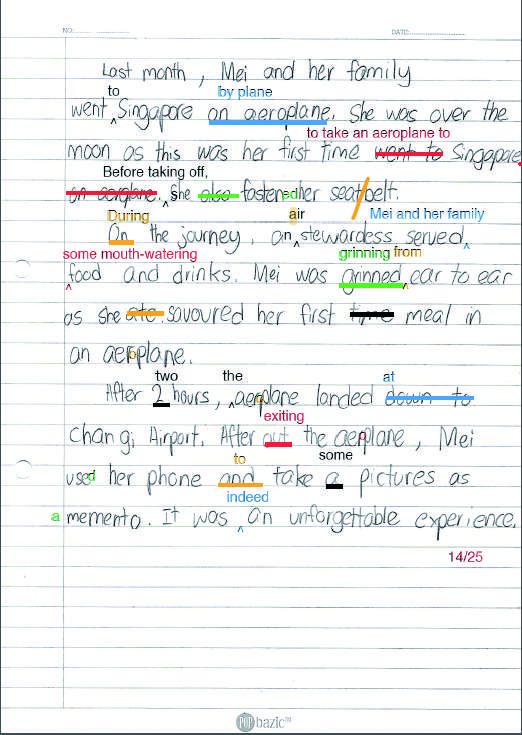 NO: DATE:
Last month, Mei and her family
to by plane
went Singapore on aeroplane. She was over the
to take an aeroplane to
moon as this was her first time went to Singapore
Before taking off,
on aeroplane. She also fastened her seatbelt.
During air Mei and her family
On the journey, an stewardess served
some mouth-watering grinning from
food and drinks. Mei was grinned ear to ear
as she ate savoured her first time meal in
an aeroplane.
two the at
After 2 hours, aeroplane landed down to
exiting
Changi Airport. After out the aeroplane, Mei
to some
used her phone and take a pictures as
indeed
a memento. It was an unforgettable experience.
14/25
POP bazic